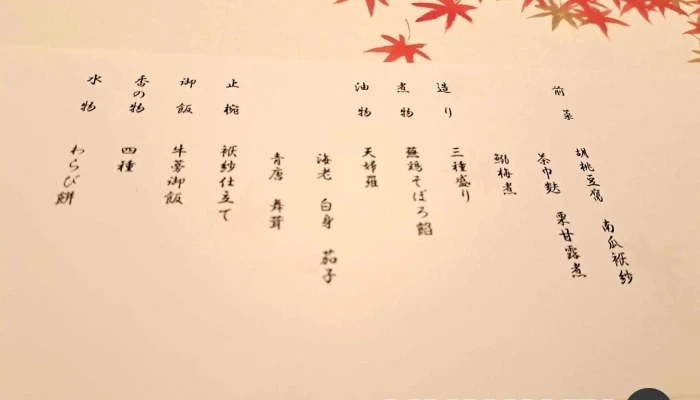 前菜
胡桃豆腐 南瓜袱紗
茶巾麩 栗甘露煮
鰯梅煮
造り 三種盛り
煮物 蕪鶏そぼろ餡
油物 天婦羅
海老 白身 茄子
青唐 舞茸
止椀 袱紗仕立て
御飯 牛蒡御飯
香の物 四種
水物 わらび餅